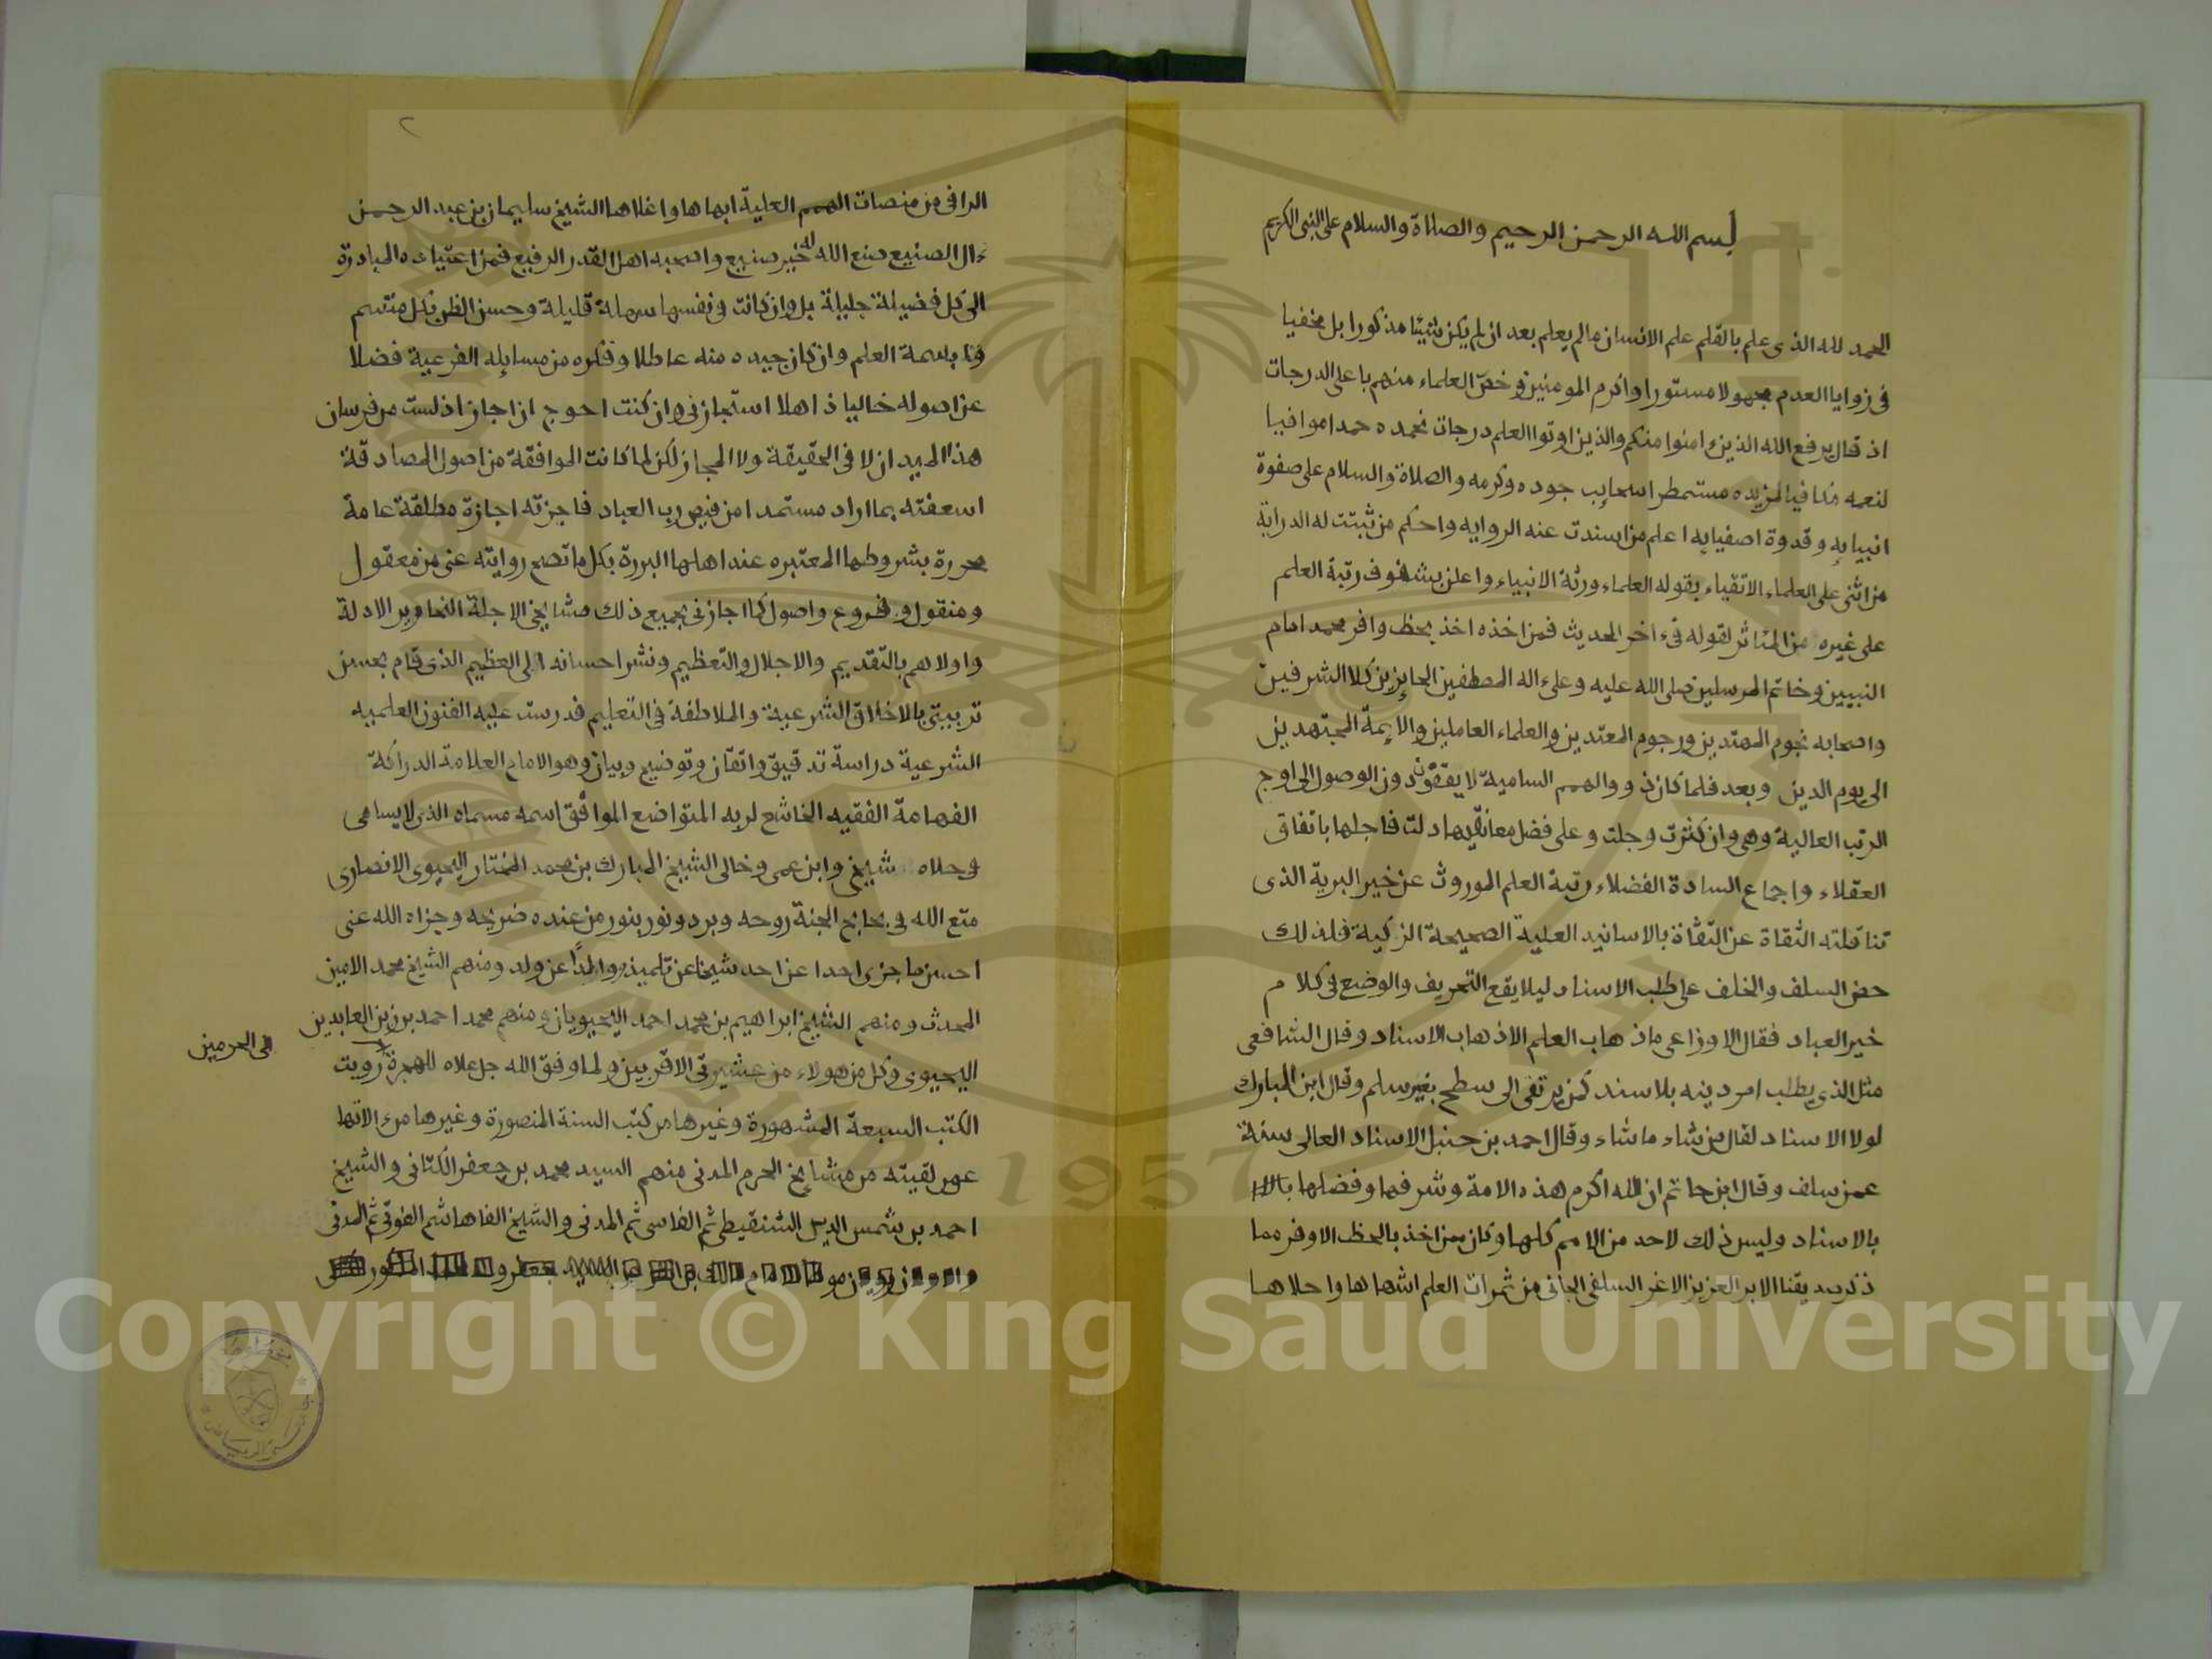 بسم الله الرحمن الرحيم والصلاة والسلام على النبي الكريم
الحمد لله الذي علم بالقلم علم الانسان مالم يعلم بعد ان لم يكن شيئا مذكورا بل مخفيا
في زوايا العدم مجهولا مستورا واكرم المومنين وخص العلماء منهم باعلى الدرجات
اذ قال يرفع الله الذين ءامنوا منكم والذين اوتوا العلم درجات نحمده حمدا موافيا
لنعمه مكافيا لمزيده مستمطرا سحايب جوده وكرمه والصلاة والسلام على صفوة
انبيايه وقدوة اصفيايه اعلم من اسندت عنه الروايه واحكم من ثبتت له الدراية
من اثنى على العلماء الاتقياء بقوله العلماء ورثة الانبياء واعلن بشفوف رتبة العلم
على غيره من المئاثر لقوله فيء اخر الحديث فمن اخذه اخذ بحظ وافر محمد امام
النبيين وخاتم المرسلين صلى الله عليه وعلىء اله المصطفين الحايزين كلا الشرفين
واصحابه نجوم المهتدين ورجوم المعتدين والعلماء العاملين والايمة المجتهدين
الى يوم الدين وبعد فلما كان ذووالهمم السامية لا يقفون دون الوصول الى اوج
الرتب العالية وهي وان كثرت وجلت وعلى فضل معانقيها دلت فاجلها باتفاق
العقلاء واجماع السادة الفضلاء رتبة العلم الموروث عن خير البرية الذي
تناقلته الثقاة عن الثقاة بالاسانيد العلية الصحيحة الزكية فلذلك
حض السلف والخلف على طلب الاسناد ليلا يقع التحريف والوضع في كلام
خير العباد فقال الاوزاعي ماذهاب العلم الاذهاب الاسناد وقال الشافعي
مثل الذي يطلب امر دينه بلا سند كمن يرتقى الى سطح بغير سلم وقال ابن المبارك
لولا الاسناد لقال من شاء ماشاء وقال احمد بن حنبل الاسناد العالى سنة
عمن سلف وقال ابن حاتم ان الله اكرم هذه الامة وشرفها وفضلها
بالاسناد وليس ذلك لاحد من الامم كلها وكان ممن اخذ بالحظ الاوفر مما
ذكر صديقنا الابر العزيز الاغر السلفي الجاني من ثمرات العلم اشهاها واحلاها
٢
الراقي من منصات الهمم العلية ابهاها واغلاها الشيخ سليمان بن عبد الرحمن
ءال الصنيع صنع الله له خير صنيع واصحبه اهل القدر الرفيع فمن اعتياده المبادرة
الى كل فضيلة جليلة بل وان كانت في نفسها سهلة قليلة وحسن الظن بكل متسم
بسمة العلم وان كان جيده منه عاطلا وفكره من مسايله الفرعية فضلا
عن اصوله خاليا ذاهلا استجازني وان كنت احوج ان اجاز اذ لست من فرسان
هذا الميدان لا في الحقيقة ولا المجاز لكن لما كانت الموافقة من اصول المصادقة
اسعفته بما اراد مستمدا من فيض رب العباد فاجزته اجازة مطلقة عامة
محررة بشروطها المعتبره عند اهلها البررة بكل ما تصح روايته عني من معقول
ومنقول وفروع واصول كما اجازني بجميع ذلك مشايخي الاجلة النحارير الادلة
واولاهم بالتقديم والاجلال والتعظيم ونشر احسانه الى العظيم الذي قام بحسن
تربيتي بالاخلاق الشرعية والملاطفة في التعليم فدرست عليه الفنون العلميه
الشرعية دراسة تدقيق واتقان وتوضيح وبيان وهو الامام العلامة الدراكة
الفهامة الفقيه الخاشع لربه المتواضع الموافق اسمه مسماه الذي لا يسامى
وحلاه شيخي وابن عمي وخالي الشيخ المبارك بن محمد المختار اليحيوي الانصاري
متع الله في بحابح الجنة روحه وبرد ونور بنور من عنده ضريحه وجزاه الله عني
احسن ما جزى احدا عن احد شيخا عن تلميذ ووالدا عن ولد ومنهم الشيخ محمد الامين
المحدث ومنهم الشيخ ابراهيم بن محمد احمد اليحيويان ومنهم محمد احمد بن زين العابدين
اليحيوي وكل من هولاء من عشيرتي الاقربين ولما وفق الله جل علاه للهجرة رويت
الى الحرمين
الكتب السبعة المشهورة وغيرها من كتب السنة المنصورة وغيرها
عمن لقيته من مشايخ الحرم المدني منهم السيد محمد بن جعفر الكتاني والشيخ
احمد بن شمس الدين الشنقيطي ثم الفاسي ثم المدني والشيخ الفاهاشم الفوتي ثم المدني
1957
Copyright © King Saud University